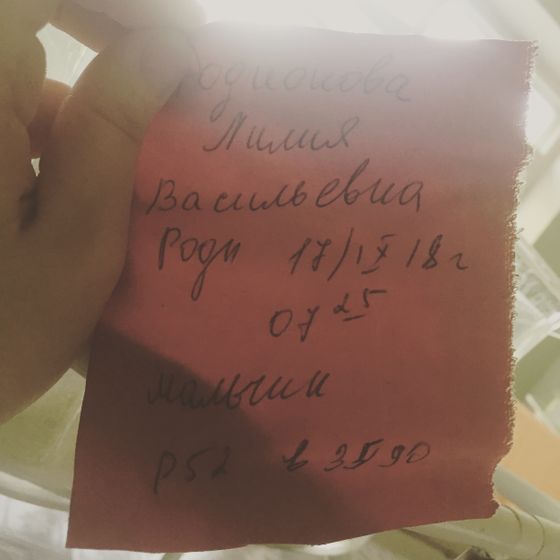 Родионова
Лилия
Васильевна
Роды 17/IX 18 г
07 25
мальчик
р 52 в 3590